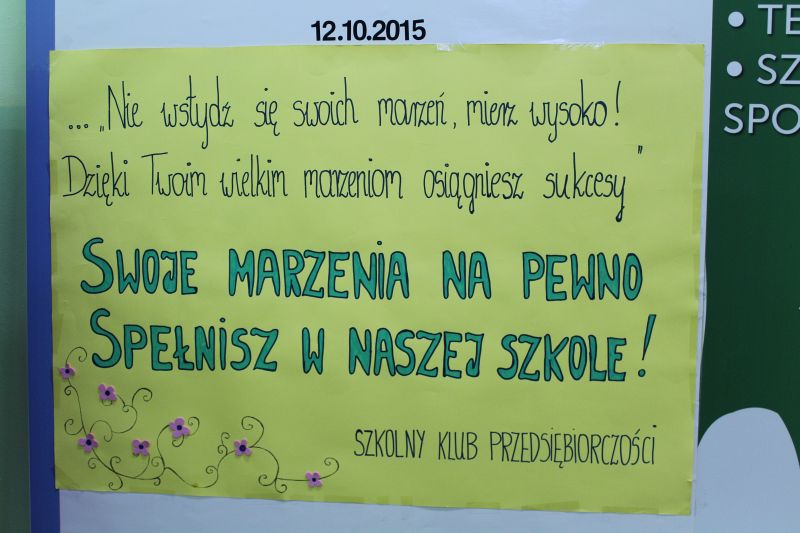 12.10.2015
... „Nie wstydz się swoich marzeń, mierz wysoko!
Dzięki Twoim wielkim marzeniom osiągniesz sukcesy"
SWOJE MARZENIA NA PEWNO
SPEŁNISZ W NASZEJ SZKOLE!
SZKOLNY KLUB PRZEDSIĘBIORCZOŚCI